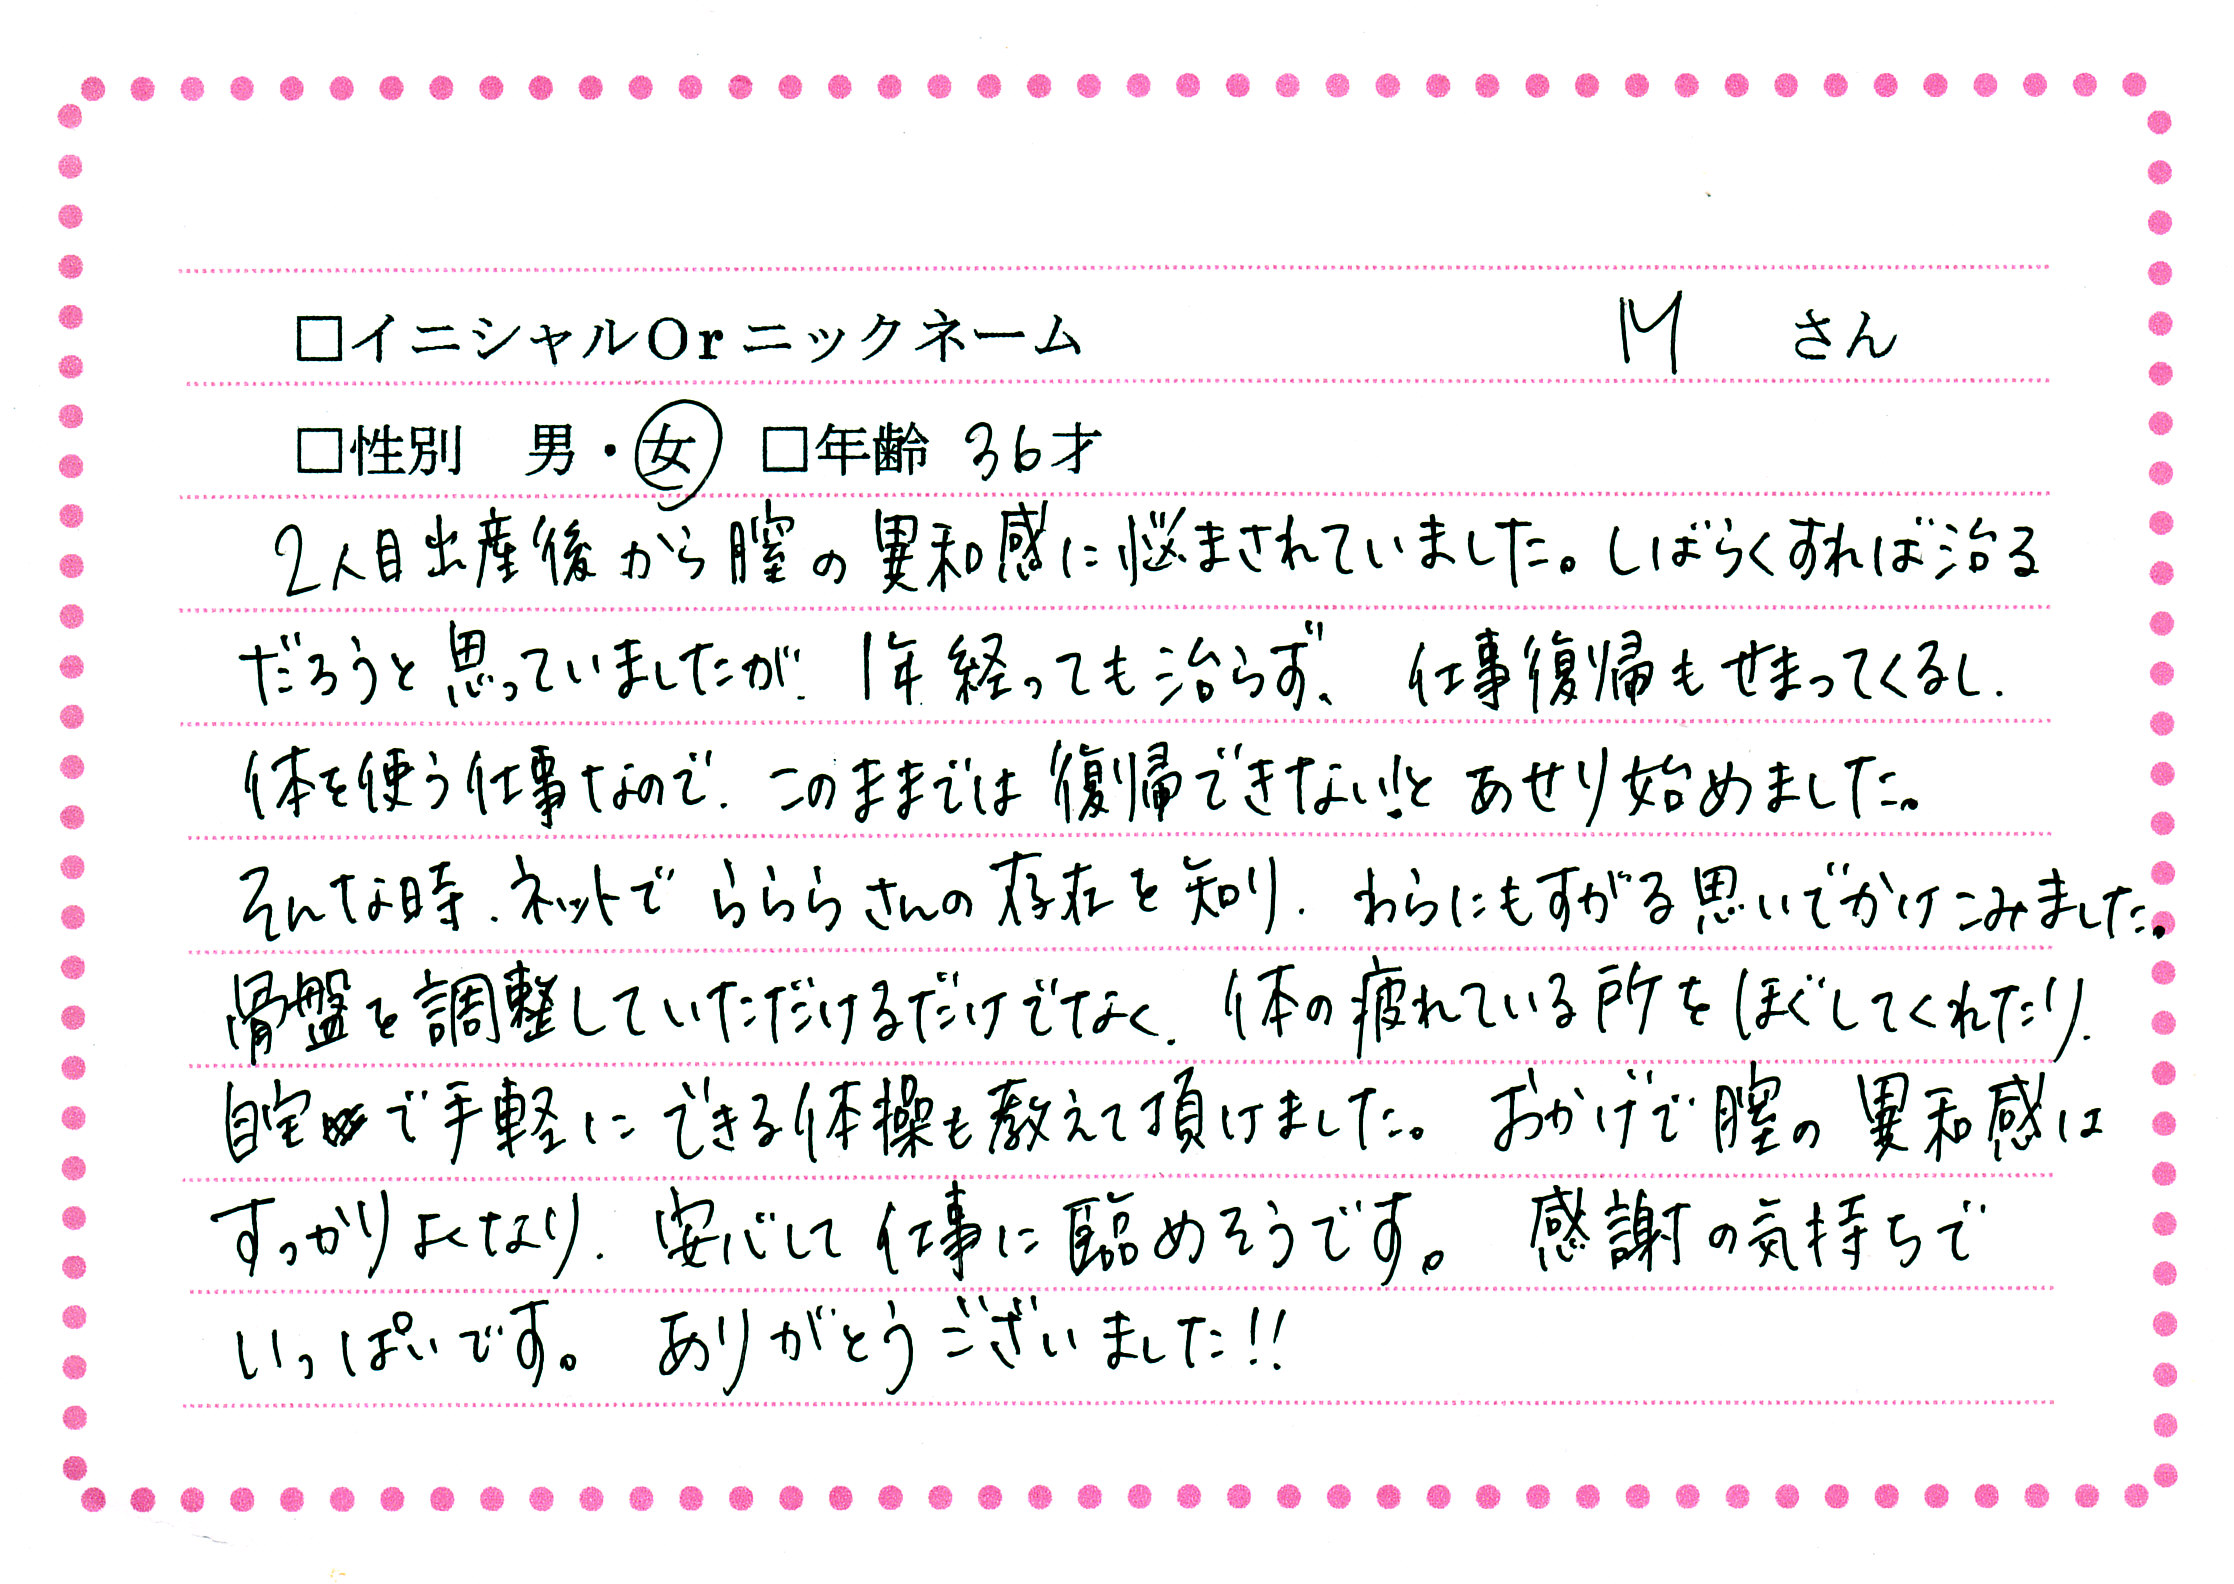 □イニシャルOrニックネーム M さん
□性別 男・女 □年齢 36才
2人目出産後から膣の異和感に悩まされていました。しばらくすれば治る
だろうと思っていましたが、1年経っても治らず、仕事復帰もせまってくるし、
体を使う仕事なので、このままでは復帰できない!とあせり始めました。
そんな時、ネットでらららさんの存在を知り、わらにもすがる思いでかけこみました。
骨盤を調整していただけるだけでなく、体の疲れている所をほぐしてくれたり、
自宅で手軽にできる体操も教えて頂けました。おかげで膣の異和感は
すっかりよくなり、安心して仕事に臨めそうです。感謝の気持ちで
いっぱいです。ありがとうございました!!